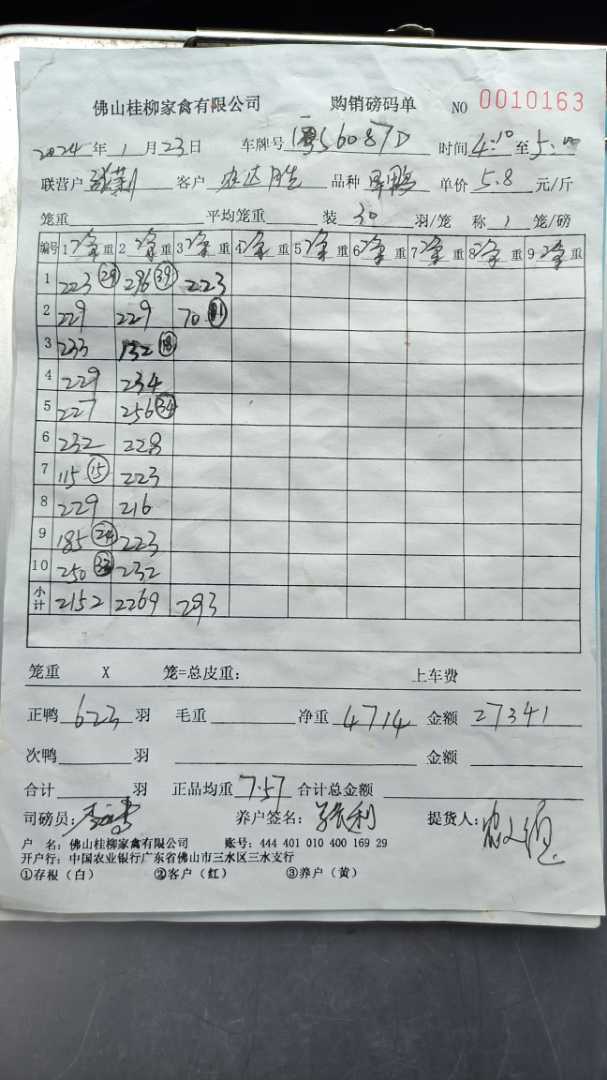 佛山桂柳家禽有限公司 购销磅码单 NO 0010163
2024年1月23日 车牌号粤S6087D 时间4:10至5:00
联营户 客户 品种 单价5.8元/斤
笼重 平均笼重 装30羽/笼 称1笼/磅
编号 1净重 2净重 3净重 4净重 5净重 6净重 7净重 8净重 9净重
1 223 (29) 296 (39) 223
2 229 229 70
3 233 132 (18)
4 229 234
5 227 256 (34)
6 232 228
7 115 (15) 223
8 229 216
9 185 (24) 223
10 250 (33) 232
小计 2152 2269 293
笼重 X 笼=总皮重: 上车费
正鸭623羽 毛重 净重4714 金额27341
次鸭 羽 金额
合计 羽 正品均重7.57 合计总金额
司磅员: 养户签名:张利 提货人:
户 名: 佛山桂柳家禽有限公司 账号: 444 401 010 400 169 29
开户行: 中国农业银行广东省佛山市三水区三水支行
①存根(白) ②客户(红) ③养户(黄)